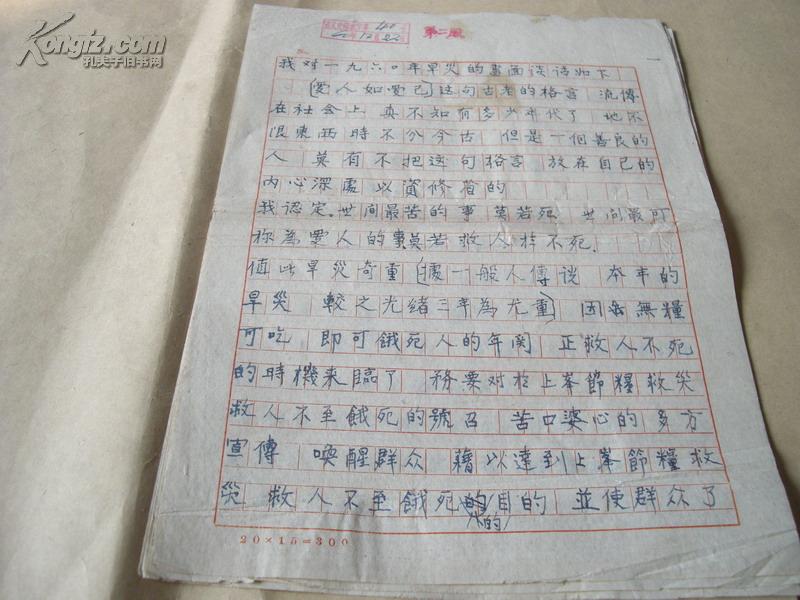 Kongfz.com
孔夫子旧书网
第二届
我对一九六〇年旱災的書面谈话如下
[愛人如愛己]这句古老的格言 流傳
在社会上 真不知有多少年代了 地不
限東西 時不分今古 但是一個善良的
人 莫有不把这句格言 放在自己的
内心深處 以資修省的
我認定。世间最苦的事 莫若死 世间最可
称為愛人的事莫若救人於不死.
值此旱災奇重[據一般人傳说 本年的
旱災 較之光緒三年為尤重] 因無糧
可吃 即可餓死人的年関 正救人不死
的時機来臨了 務要对於上峯節糧救災
救人不至餓死的號召 苦口婆心的 多方
宣傳 喚醒群众 藉以達到上峯節糧救
災 救人不至餓死的目的 並使群众了
20×15=300